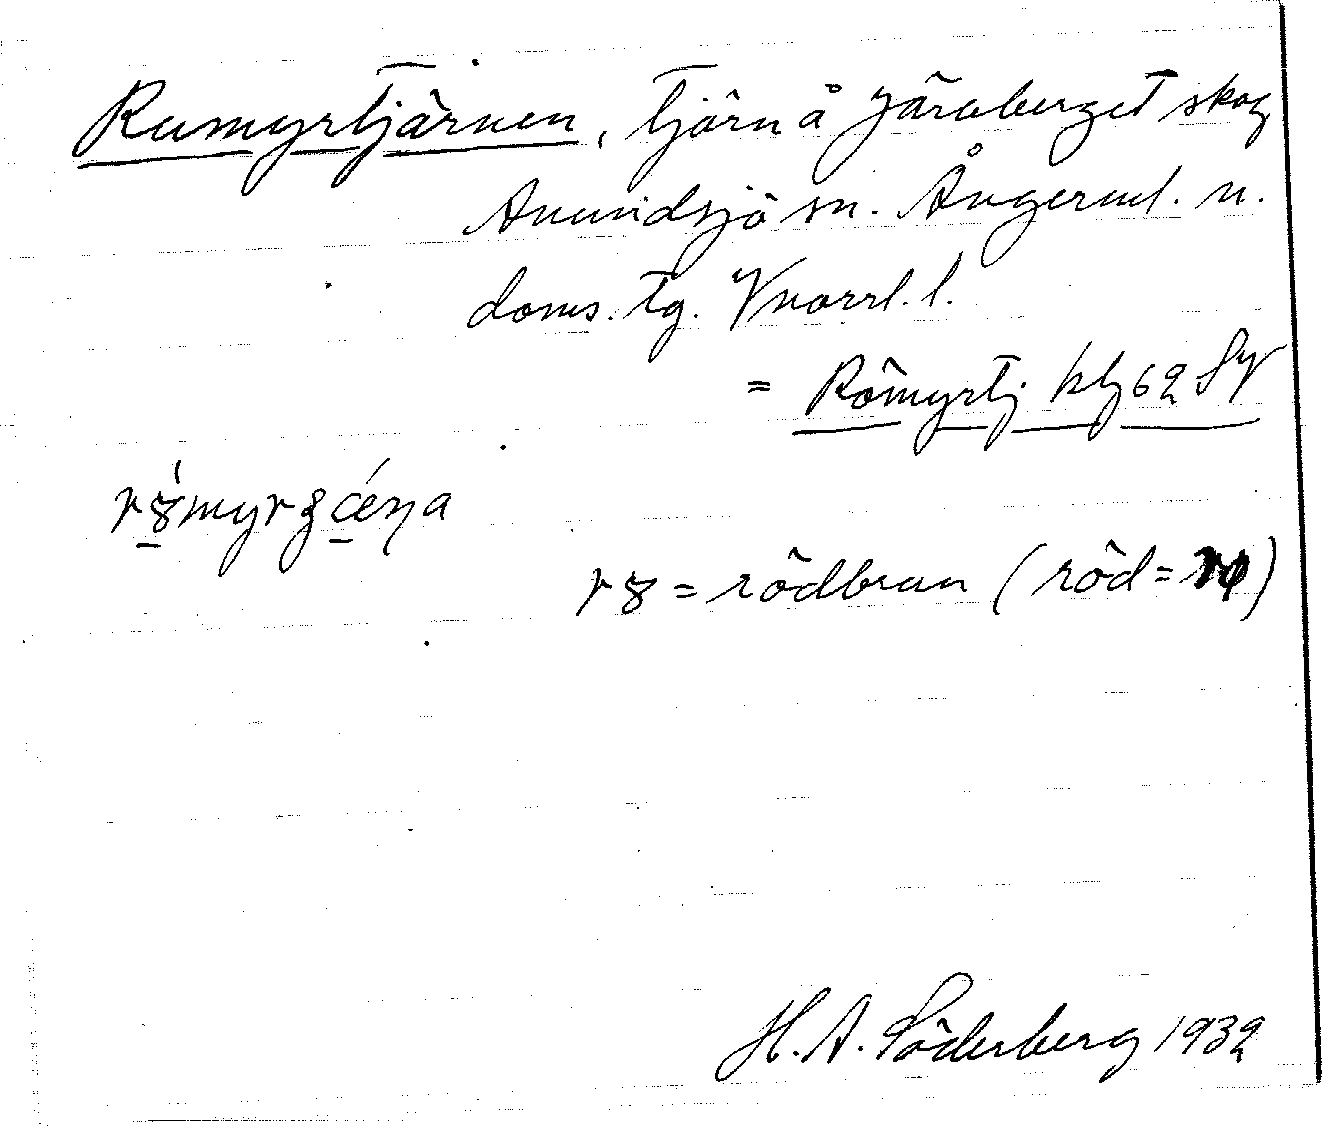 Rumyrtjärnen, tjärn å Järaberget skog
Anundsjö sn. Ångerml. n.
doms. tg. Vnorrl. l.
= Römyrtj kbl 62 SV
= rödbrun (röd = )
H. A. Söderberg 1932